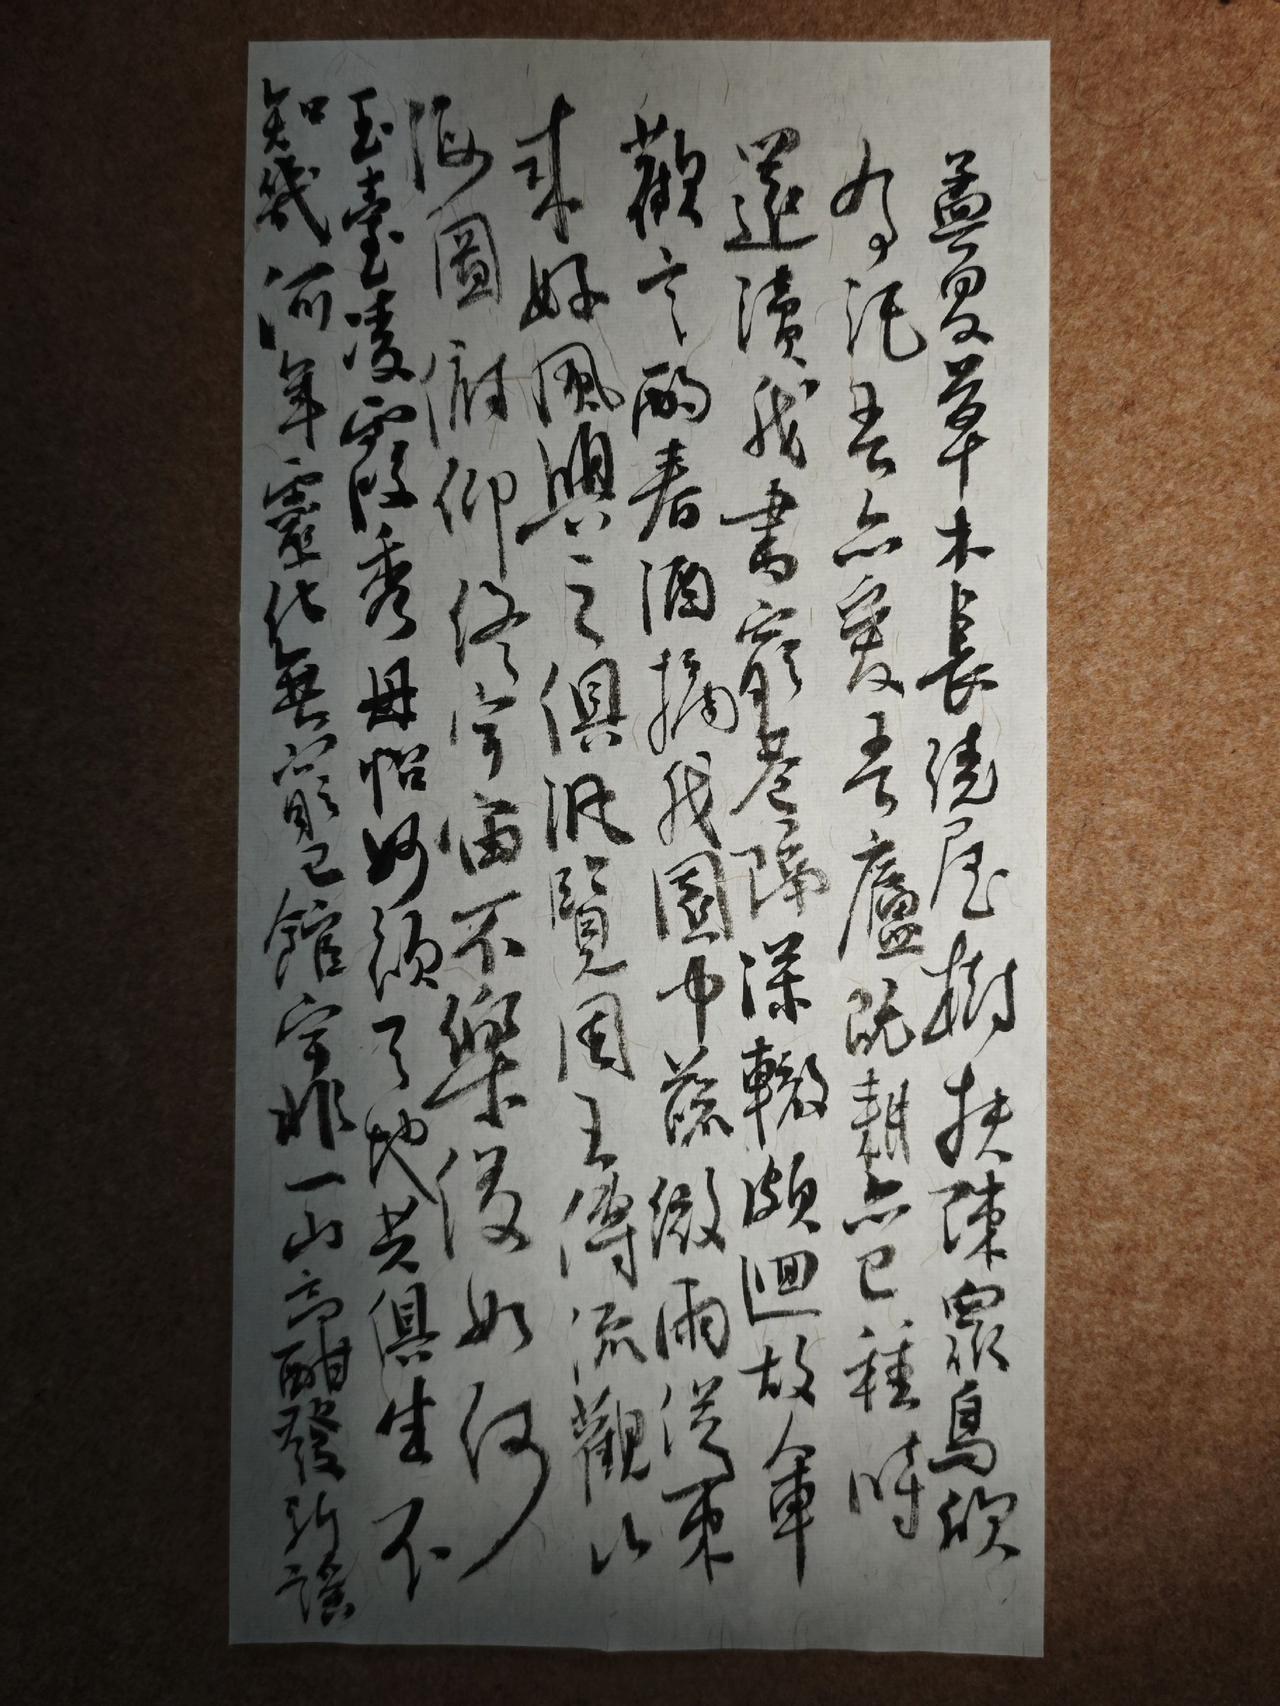 孟夏草木長繞屋樹扶疎衆鳥欣
有託吾亦愛吾廬既耕亦已種時
還讀我書窮巷隔深轍頗迴故車
歡言酌春酒摘我園中蔬微雨從東
來好風與之俱汎覽周王傳流觀山
海圖俯仰終宇宙不樂復如何
玉臺凌霞秀母怡妙顏天地共俱生不
知幾何年靈化無窮已館宇非一山高酣發新謠